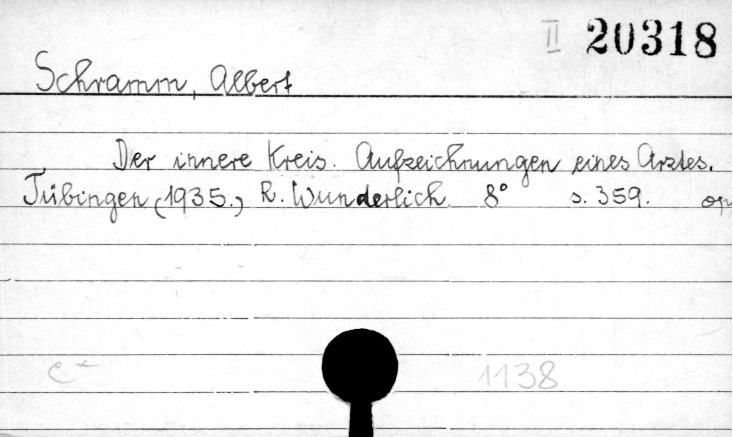 II 20318
Schramm, Albert
Der innere Kreis. Aufzeichnungen eines Arztes.
Tübingen (1935.) R. Wunderlich 8° s. 359. op
1138